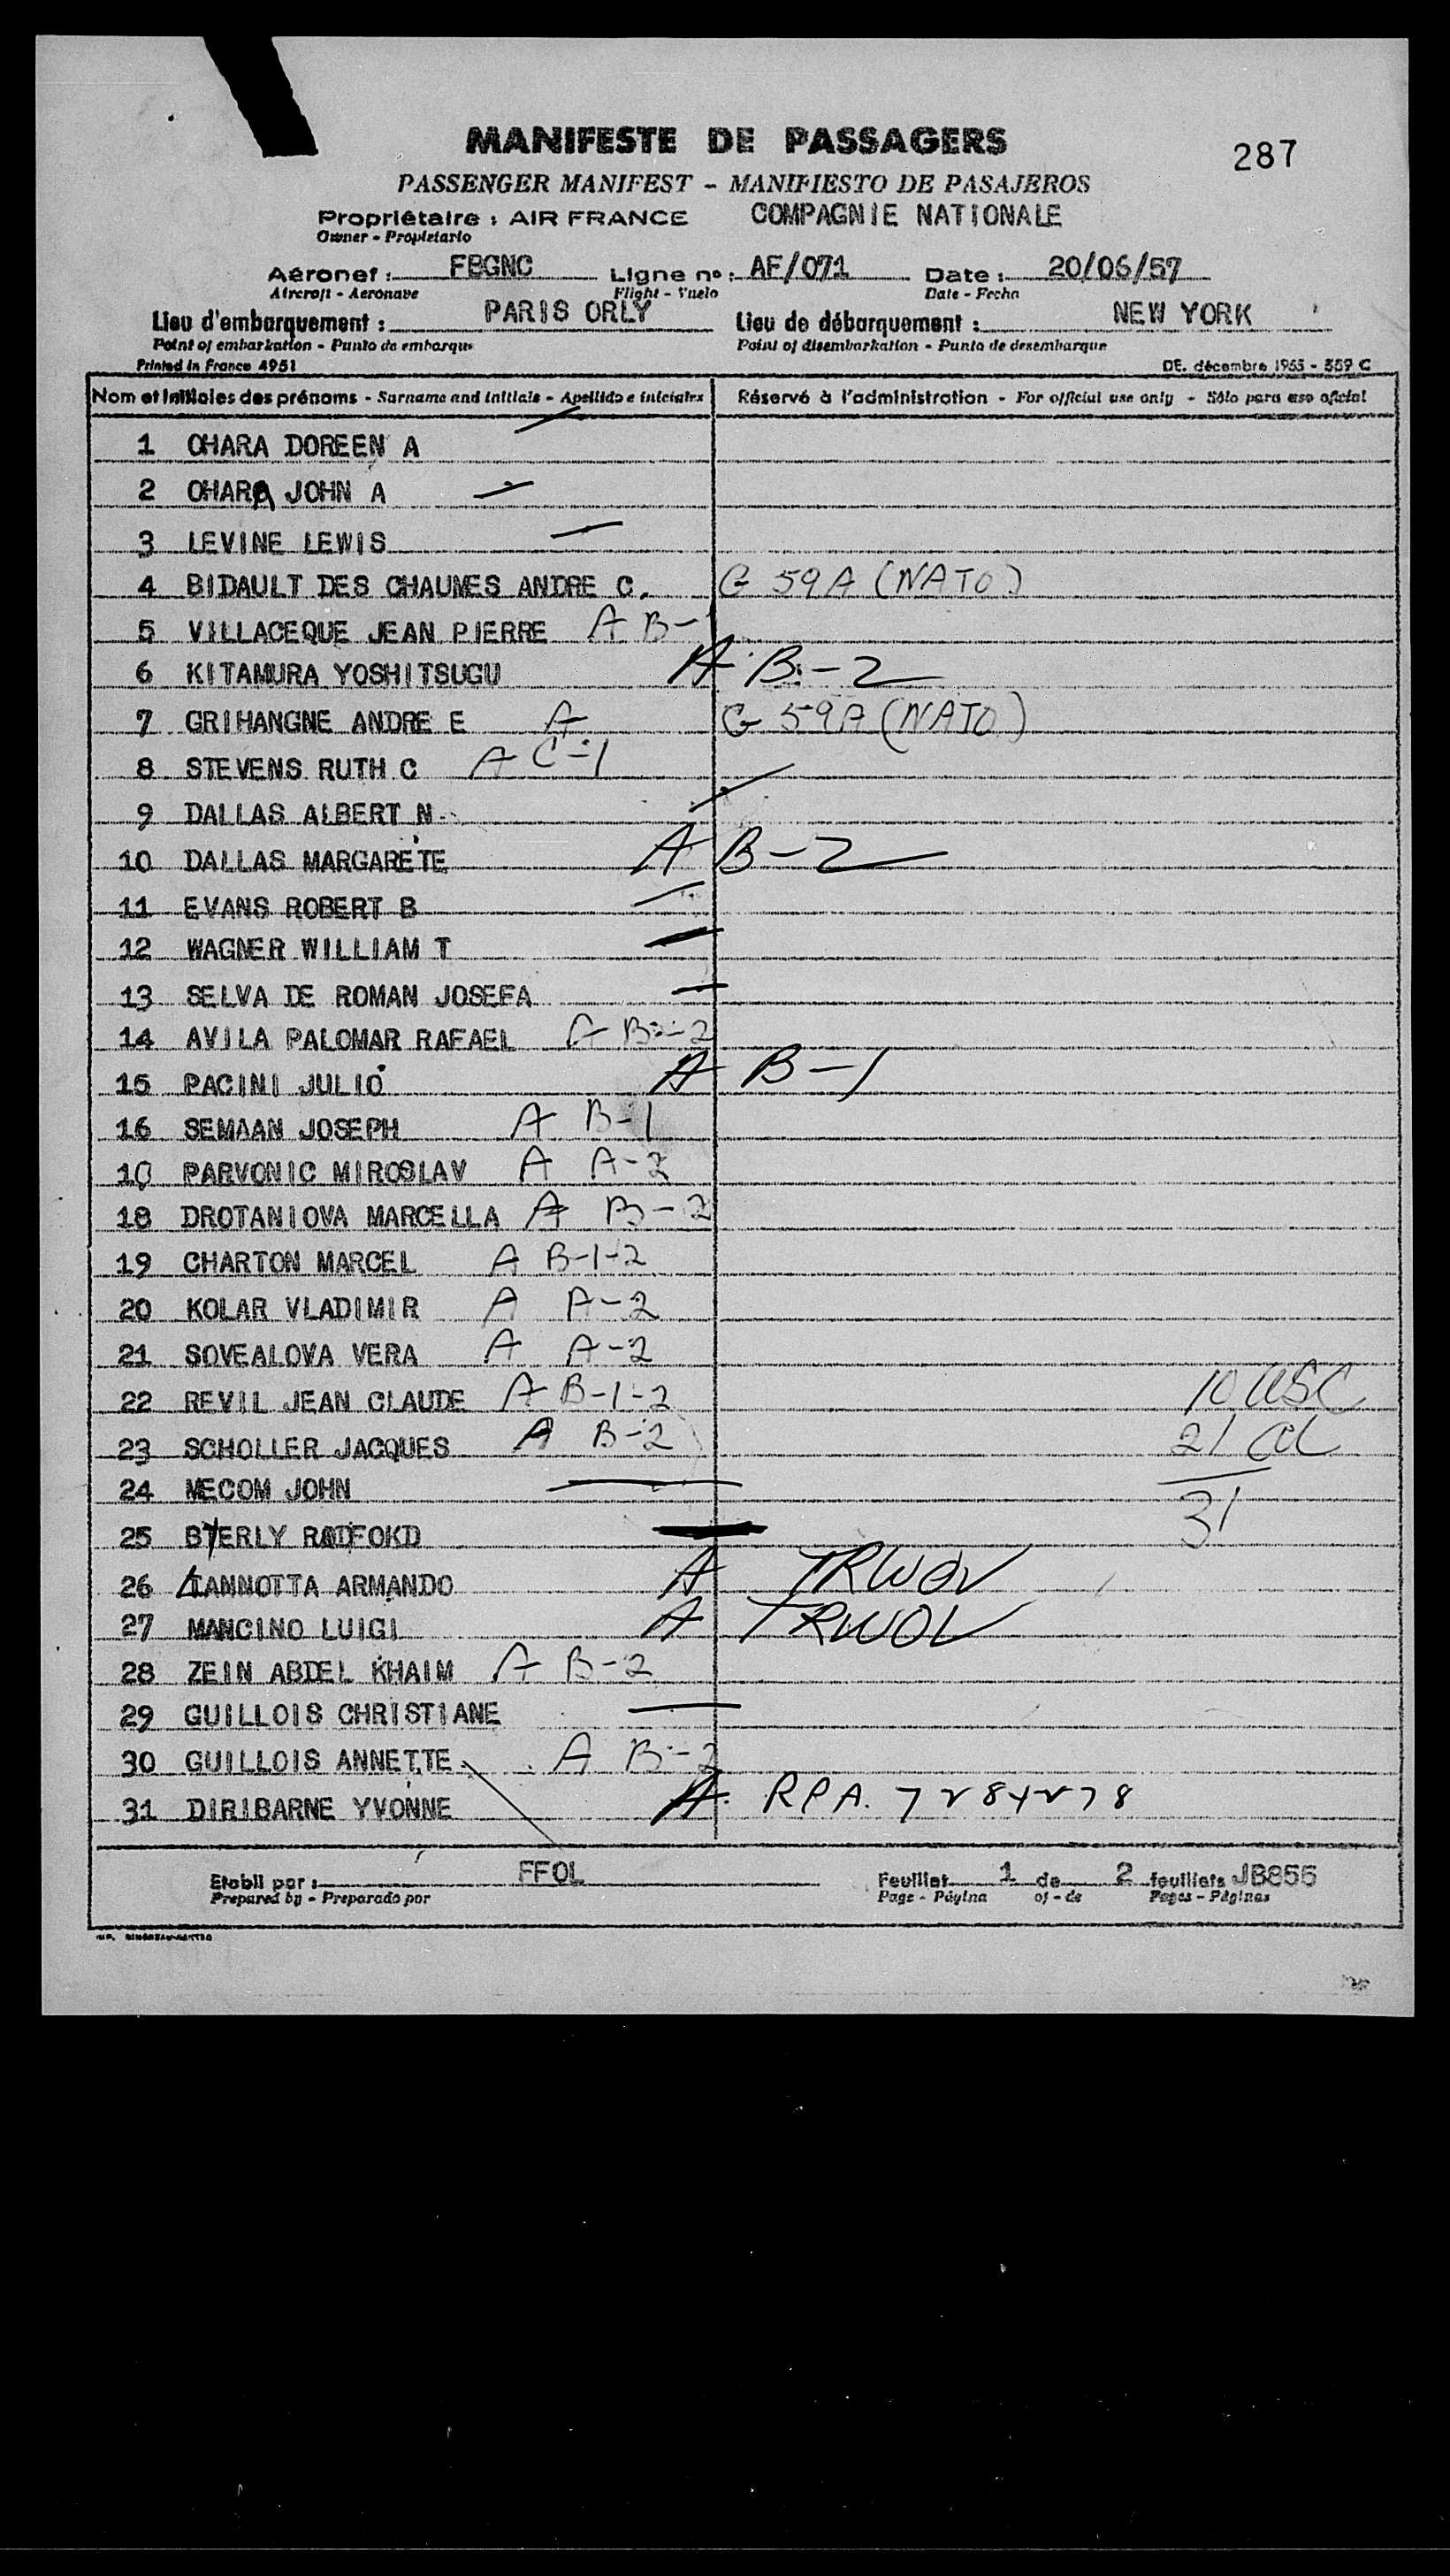 MANIFESTE DE PASSAGERS
287
PASSENGER MANIFEST - MANIFIESTO DE PASAJEROS
Propriétaire : AIR FRANCE COMPAGNIE NATIONALE
Owner - Propietario
Aéronef : FBGNC Ligne nº : AF/071 Date : 20/06/57
Aircraft - Aeronave Flight - Vuelo Date - Fecha
Lieu d'embarquement : PARIS ORLY Lieu de débarquement : NEW YORK
Point of embarkation - Punto de embarque Point of disembarkation - Punto de desembarque
Printed in France 4951 DE. décembre 1955 - 559 C
Nom et Initiales des prénoms - Surname and initials - Apellido e iniciales Réservé à l'administration - For official use only - Sólo para uso oficial
1 OHARA DOREEN A
2 OHARA JOHN A
3 LEVINE LEWIS
4 BIDAULT DES CHAUMES ANDRE C. G 59A (NATO)
5 VILLACEQUE JEAN PIERRE A B-1
6 KITAMURA YOSHITSUGU A B-2
7 GRIHANGNE ANDRE E A G 59A (NATO)
8 STEVENS RUTH C A C-1
9 DALLAS ALBERT N
10 DALLAS MARGARETE A B-2
11 EVANS ROBERT B
12 WAGNER WILLIAM T
13 SELVA DE ROMAN JOSEFA
14 AVILA PALOMAR RAFAEL A B-2
15 PACINI JULIO A B-1
16 SEMAAN JOSEPH A B-1
10 PARVONIC MIROSLAV A A-2
18 DROTANIOVA MARCELLA A B-2
19 CHARTON MARCEL A B-1-2
20 KOLAR VLADIMIR A A-2
21 SOVEALOVA VERA A A-2
22 REVIL JEAN CLAUDE A B-1-2 10 USC
23 SCHOLLER JACQUES A B-2 21
24 MECOM JOHN
31
25 BYERLY RADFORD
26 IANNOTTA ARMANDO A TRWOV
27 MANCINO LUIGI A TRWOV
28 ZEIN ABDEL KHAIM A B-2
29 GUILLOIS CHRISTIANE
30 GUILLOIS ANNETTE A B-2
31 DIRIBARNE YVONNE A RPA.
Etabli par : FFOL Feuillet 1 de 2 feuillets JB855
Prepared by - Preparado por Page - Página of - de Pages - Páginas